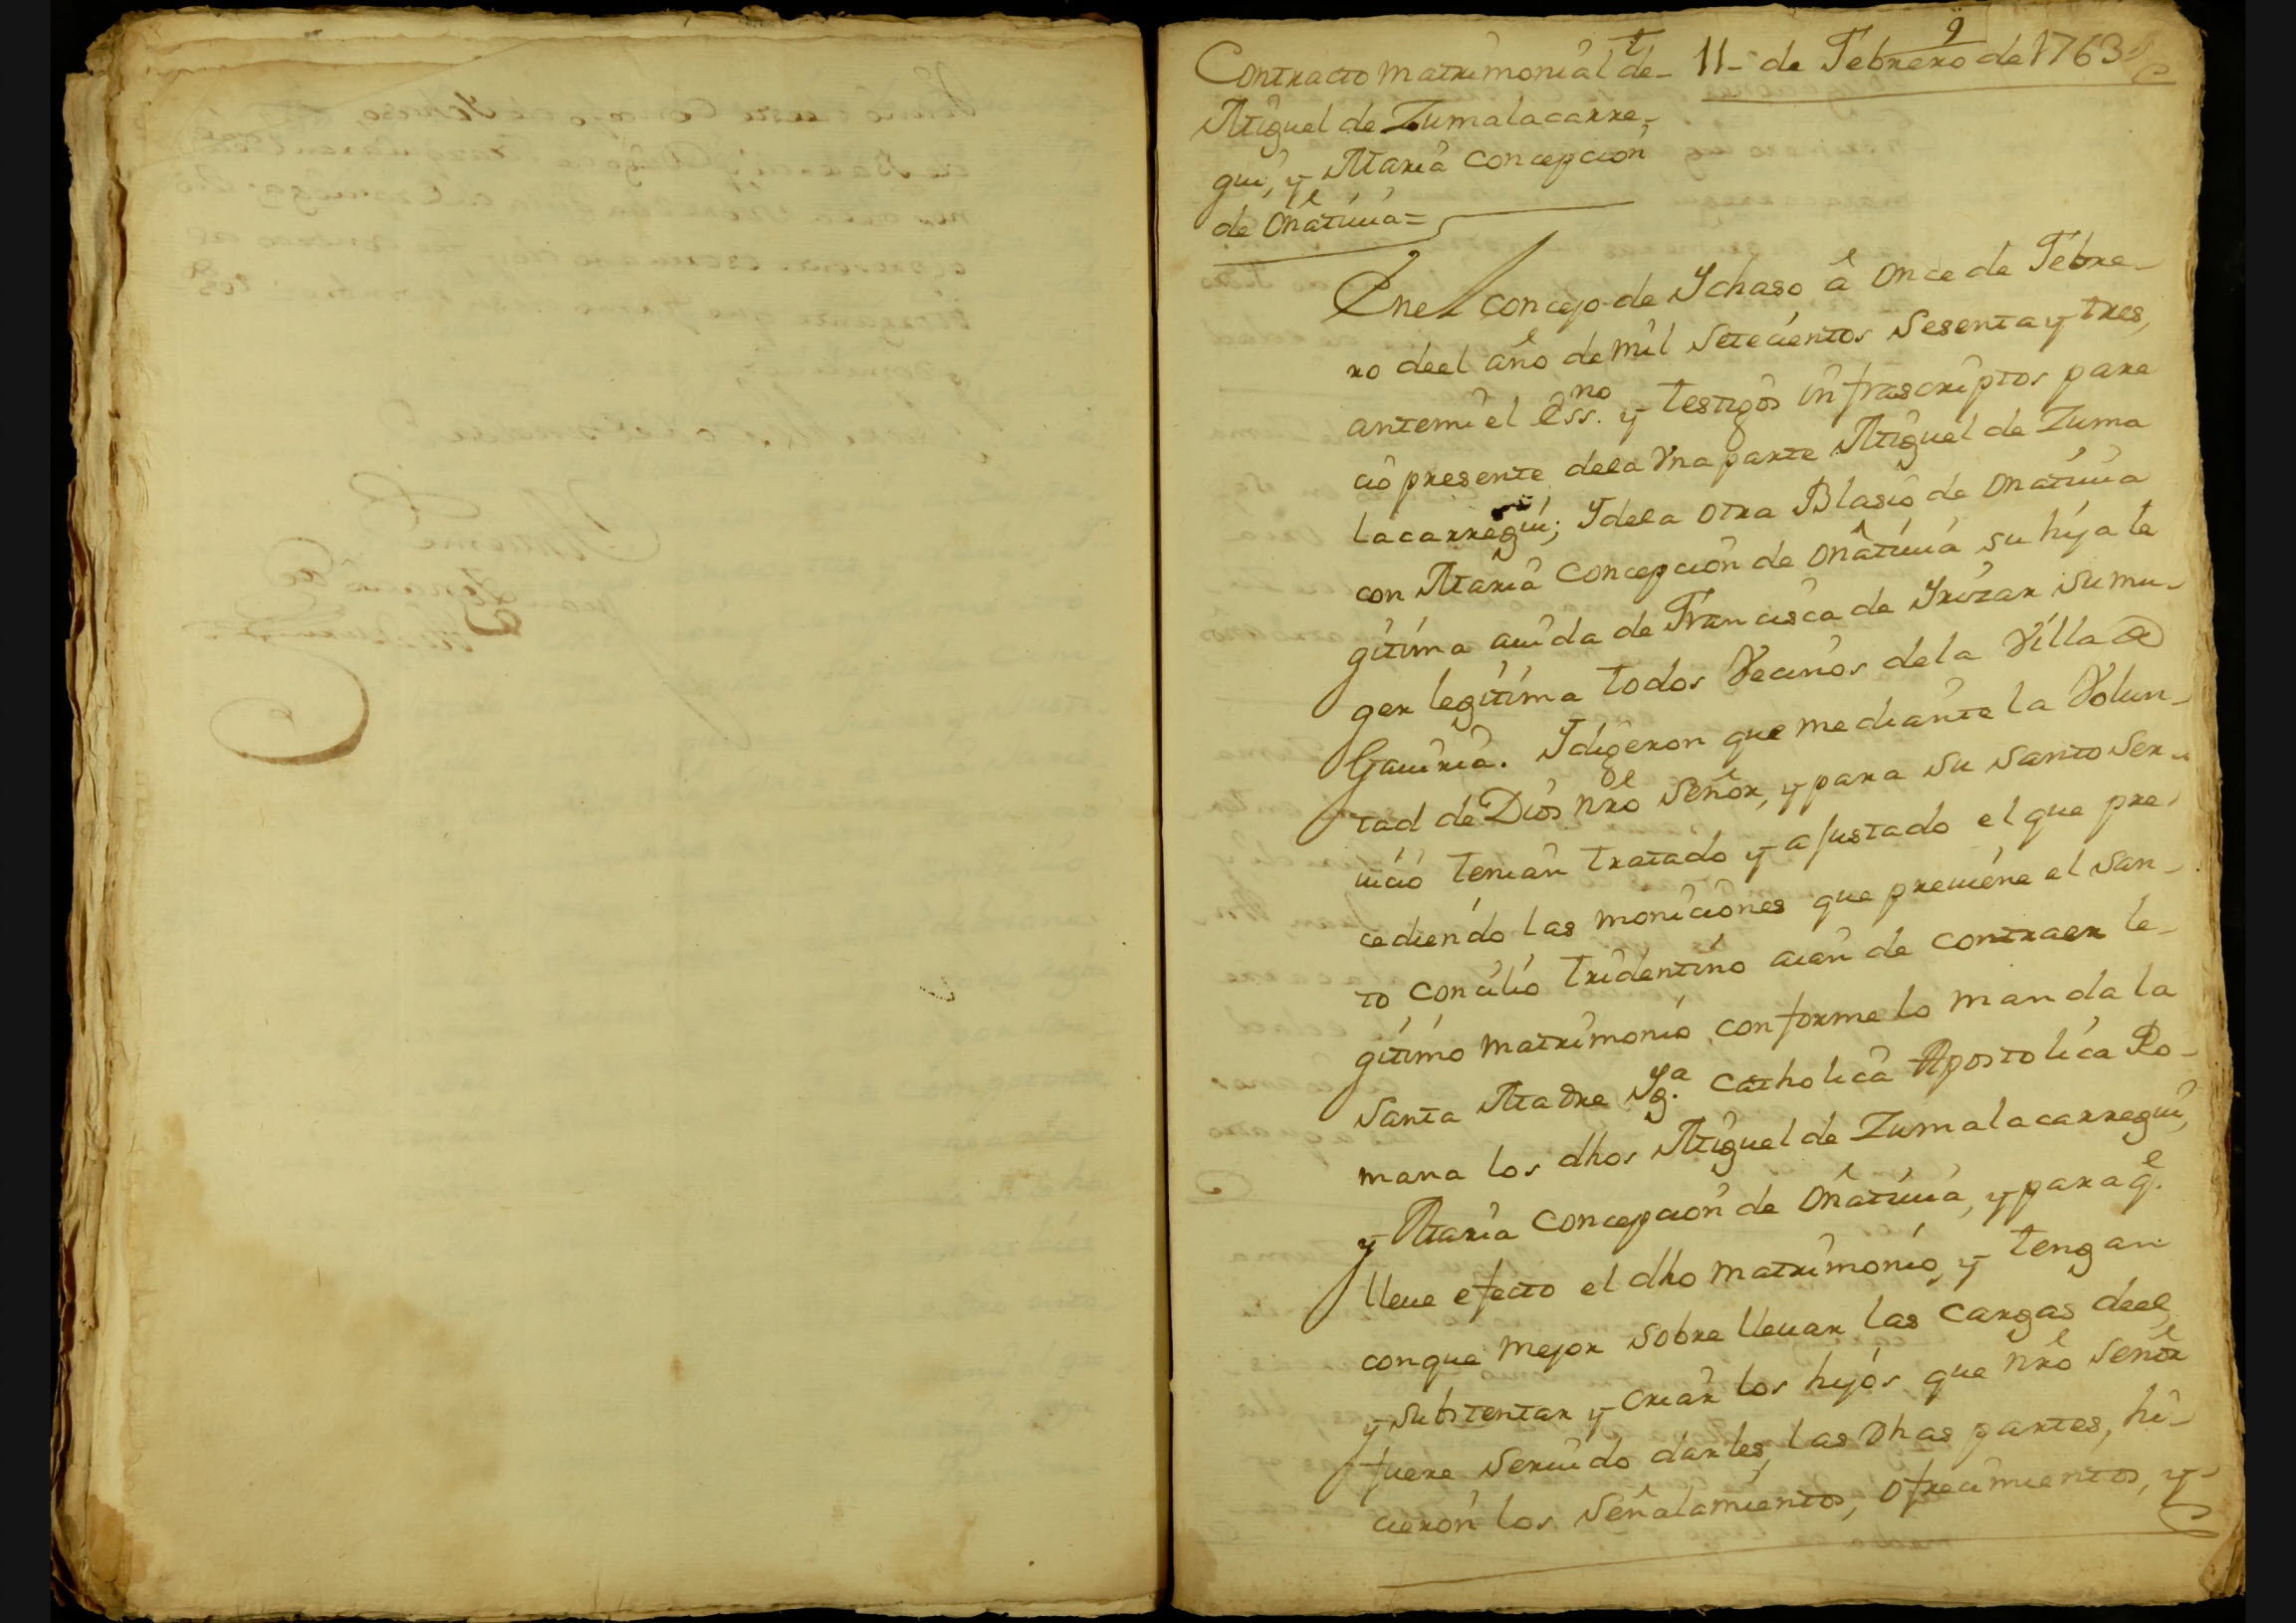 9
Contracto matrimonial de 11- de Febrero de 1763
Miguel de Zumalacarre-
gui, y Maria Concepcion
de Oñativia=
Enel concejo de Ychaso à Once de Febre-
ro deel año de mil Setecientos Sesenta y tres,
antemi el Ess.no y testigos infrascriptos pare
cio presente dela Vna parte Miguel de Zuma
lacarregui; Ydela otra Blasio de Onativia
con Maria Concepcion de Oñativia su hija le
gitima auida de Francisca de Yrizar Sumu-
ger legitima todos Vecinos dela Villa de
Gauiria. Ydigeron que mediante la Volun-
tad de Dios nrô Señor, y para su Santo Ser-
uicio tenian tratado y ajustado el que pre-
cediendo las moniciones que preuiene el San-
to Concilio tridentino auian de contraer le-
gitimo matrimonio conforme lo manda la
Santa Madre Yg.a Catholica Apostolica Ro-
mana los dhos Miguel de Zumalacarregui,
y Maria Concepcion de Oñativia, y para q.e
lleue efecto el dho matrimonio, y tengan
conque mejor sobre lleuar las cargas deel,
y substentar y criar los hijos que nrô Señor
fuere seruido darles, las Dhas partes, hi-
cieron los Señalamientos, ofrecimientos, y